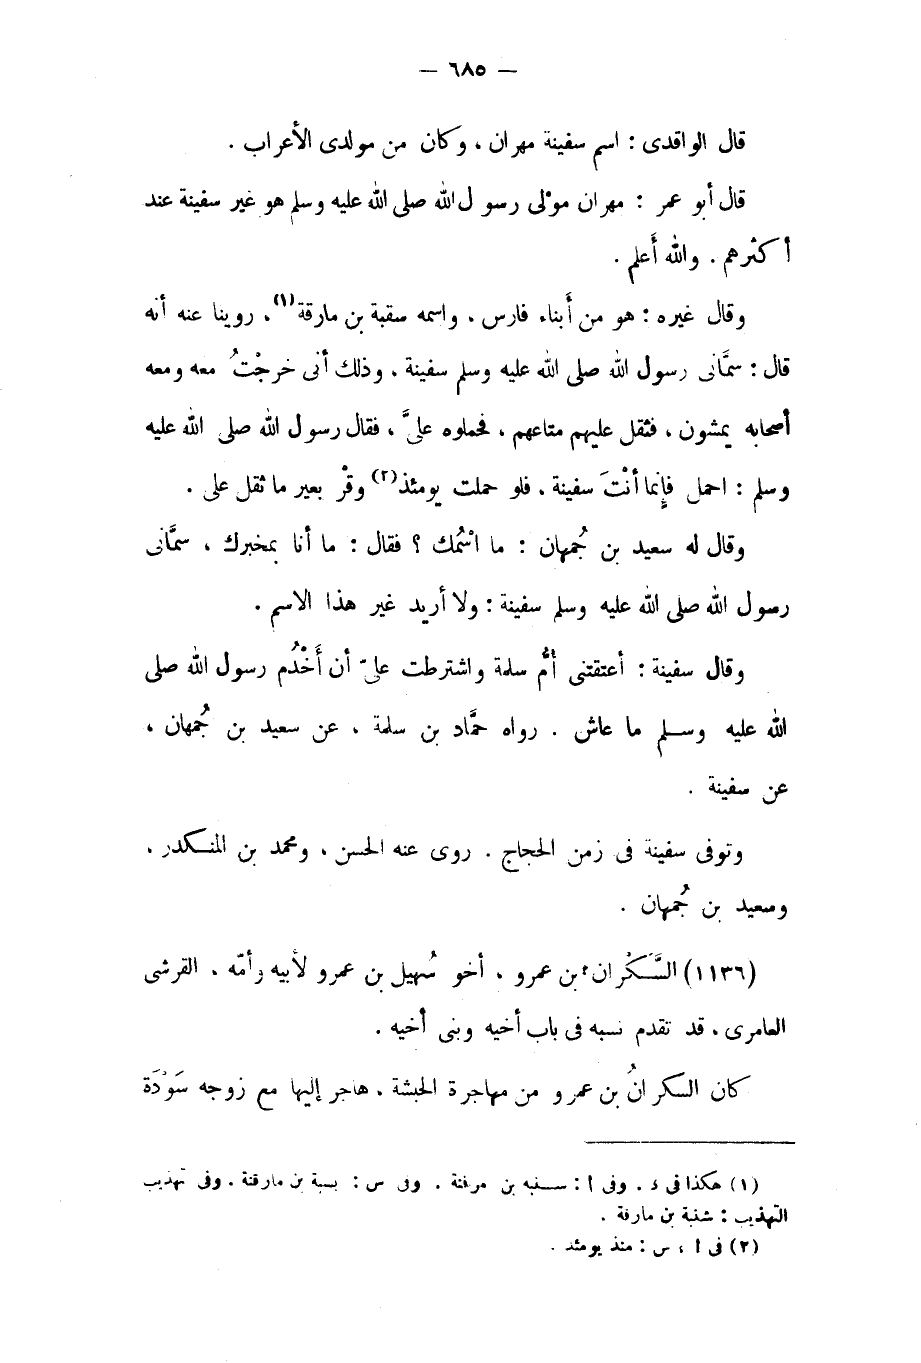 — ٦٨٥ —
قال الواقدى : اسم سفينة مهران ، وكان من مولدى الأعراب .
قال أبو عمر : مهران مولى رسول الله صلى الله عليه وسلم هو غير سفينة عند
أكثرهم . والله أعلم .
وقال غيره : هو من أبناء فارس ، واسمه سقبة بن مارقة(١) ، روينا عنه أنه
قال : سمَّانى رسول الله صلى الله عليه وسلم سفينة ، وذلك أنى خرجْتُ معه ومعه
أصحابه يمشون ، فثقل عليهم متاعهم ، فحملوه علىَّ ، فقال رسول الله صلى الله عليه
وسلم : احمل فإنما أنْتَ سفينة ، فلو حملت يومئذ(٢) وقْر بعير ما ثقل على .
وقال له سعيد بن جُمهان : ما اسْمُك ؟ فقال : ما أنا بمخبرك ، سمَّانى
رسول الله صلى الله عليه وسلم سفينة : ولا أريد غير هذا الاسم .
وقال سفينة : أعتقتنى أمُّ سلمة واشترطت علىّ أن أَخْدُم رسول الله صلى
الله عليه وسلم ما عاش . رواه حمَّاد بن سلمة ، عن سعيد بن جُمهان ،
عن سفينة .
وتوفى سفينة فى زمن الحجاج . روى عنه الحسن ، ومحمد بن المنكدر ،
وسعيد بن جُمهان .
(١١٣٦) السَّكْران بن عمرو ، أخو سُهيل بن عمرو لأبيه وأمّه ، القرشى
العامرى ، قد تقدم نسبه فى باب أخيه وبنى أخيه .
كان السكرانُ بن عمرو من مهاجرة الحبشة ، هاجر إليها مع زوجه سَوْدَة
(١) هكذا فى ء . وفى ا : سنبه بن مرفنة . وفى س : بسبة بن مارقنة . وفى تهذيب
التهذيب : شنبة بن مارفة .
(٢) فى ا ، س : منذ يومئذ .